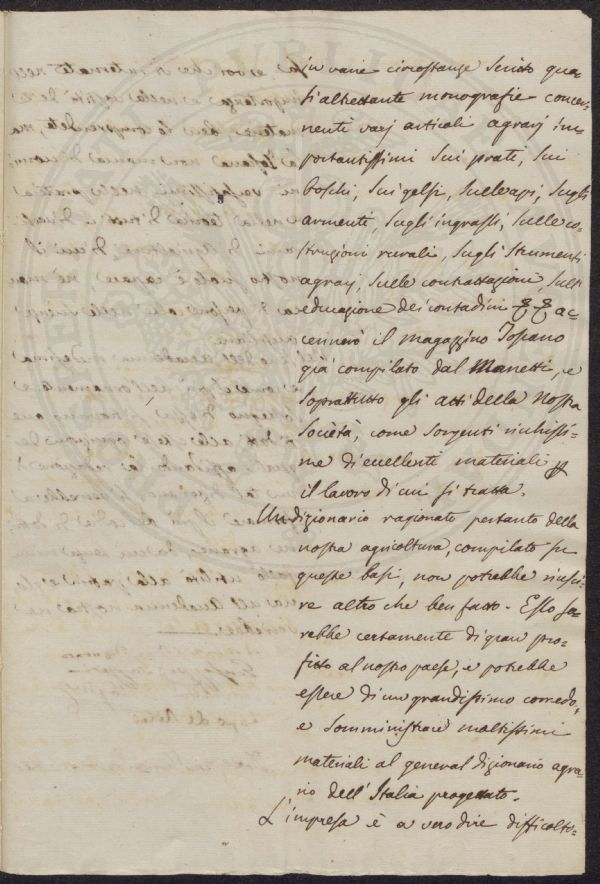 in varie circostanze scritto qua-
si altrettante monografie concer-
nenti varj articoli agrarj im-
portantissimi sui prati, sui
boschi, sui gelsi, sulle api, sugli
armenti, sugli ingrassi, sulle co-
struzioni rurali, sugli strumenti
agrarj, sulle contrattazioni, sull'
educazione dei contadini && ac-
cennerò il magazzino Toscano
già compilato dal Manetti, e
soprattutto gli atti della nostra
Società, come sorgenti ricchissi-
me di eccellenti materiali
il lavoro di cui si tratta.
Un dizionario ragionato pertanto della
nostra agricoltura, compilato su
queste basi, non potrebbe riusci-
re altro che ben fatto. Esso sa-
rebbe certamente di gran pro-
fitto al nostro paese, e potrebbe
essere di un grandissimo corredo,
e somministrare moltissimi
materiali al general dizionario agra-
rio dell'Italia progettato.
L'impresa è a vero dire difficolto-